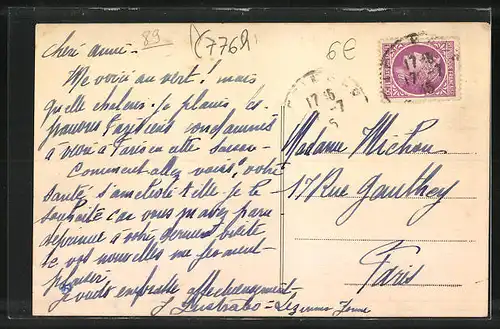 89
(7762)
6€
17 15
-7
Chère amie -
Me voici au vert ! mais
quelle chaleur. Je plains les
pauvres Parisiens condamnés
à vivre à Paris en cette saison
Comment allez vous? votre
santé s'améliore t'elle je le
souhaite car vous m'avez paru
déprimée à votre dernière visite
de vos nouvelles me feraient
plaisir
Je vous embrasse affectueusement
Madame Michon
17 Rue Gauthey
Paris